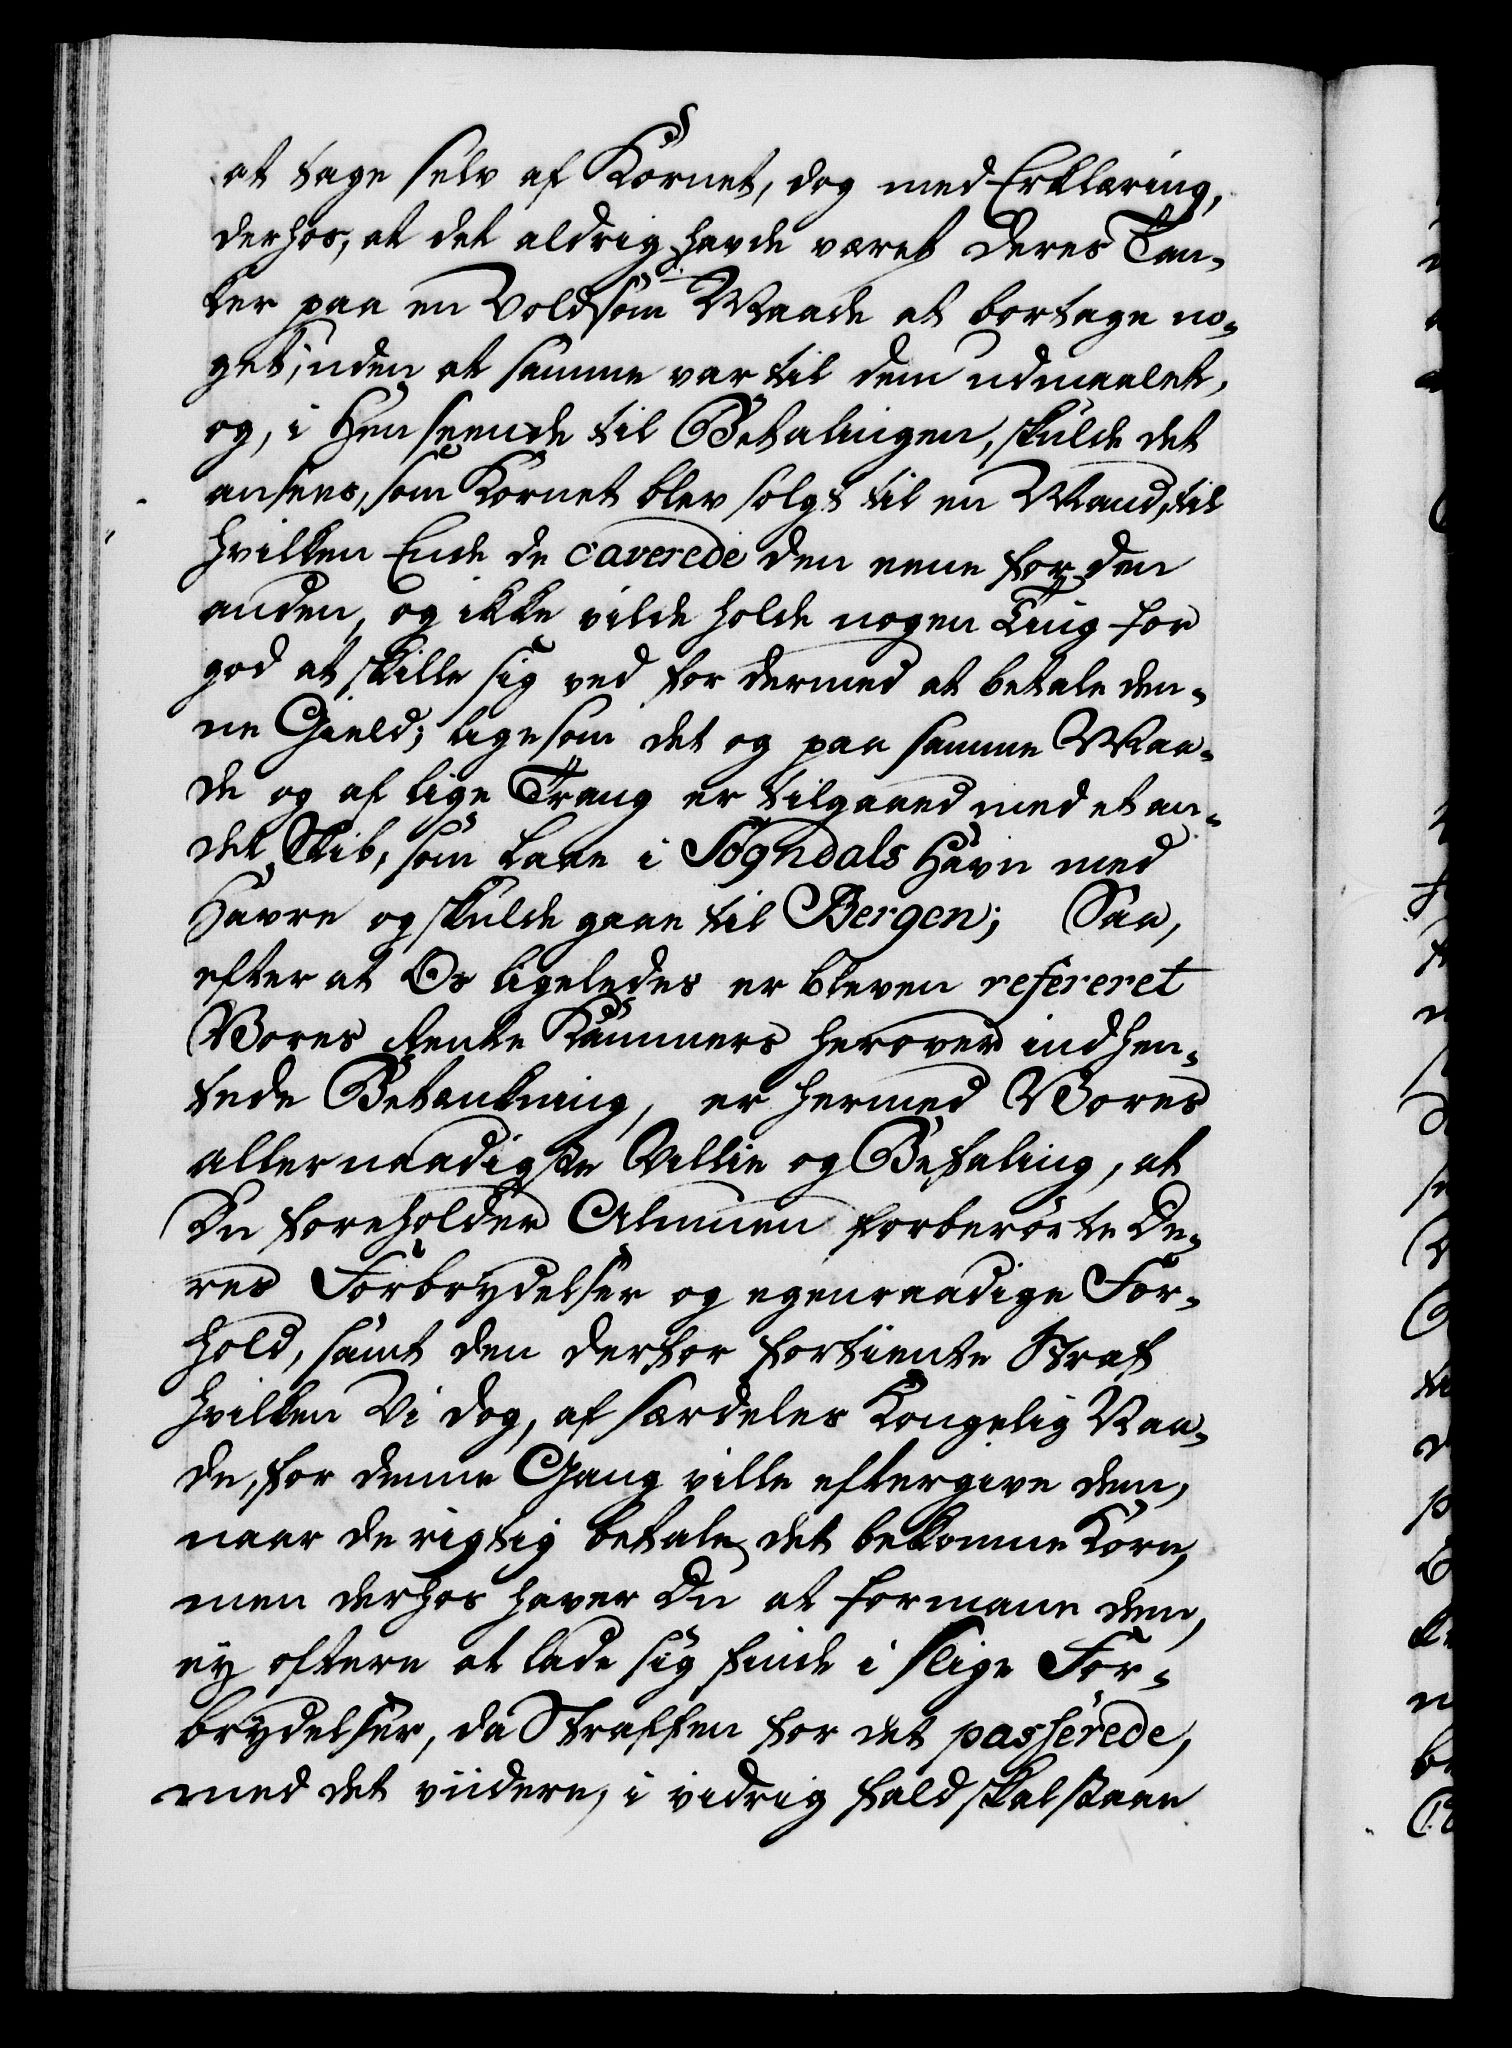 at tage selv af Kornet, dog med Erklæring,
derhos, at det aldrig havde været deres Tan-
ker paa en voldsom Maade at borttage no-
get, uden at samme var til dem udmaalet,
og, i Henseende til Betalingen, skulde det
ansees, som Kornet blev solgt til en Mand, til
hvilken Ende de caverede den eene for den
anden, og ikke vilde holde nogen Ting for
god at skille sig ved for dermed at betale den-
ne Gield; ligesom det og paa samme Maa-
de og af lige Trang er tilgaaed med et an-
det Skib, som laae i Sogndals Havn med
Havre og skulde gaae til Bergen; Saa,
efter at Os ligeledes er bleven refereret
Vores Rente Kammers herover indhen-
tede Betænkning, er hermed Vores
allernaadigste Villie og Befaling, at
Du foreholder Almuen forberørte De-
res Forbrydelser og egenraadige For-
hold, samt den derfor fortiente Straf
hvilken Vi dog, af særdeles Kongelig Naa-
de, for denne Gang ville eftergive dem,
naar de rigtig betale det bekomne Korn,
men derhos haver Du at formane dem,
ey oftere at lade sig finde i slige For-
brydelser, da Straffen for det passerede,
med det viidere, i vidrig Fald skal staae